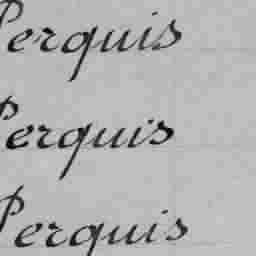 Perquis
Perquis
Perquis